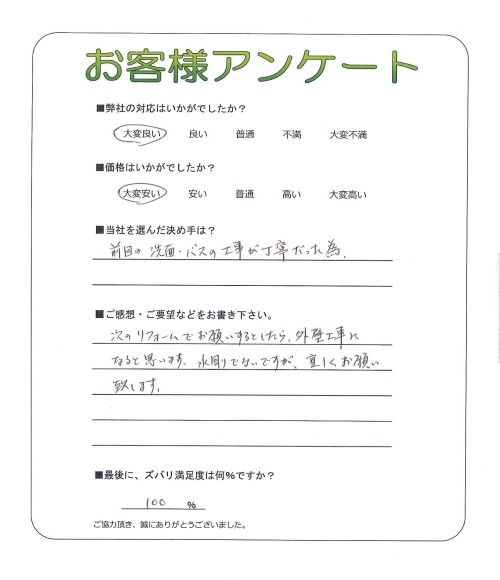 お客様アンケート
■弊社の対応はいかがでしたか？
大変良い 良い 普通 不満 大変不満
■価格はいかがでしたか？
大変安い 安い 普通 高い 大変高い
■当社を選んだ決め手は？
前回の洗面・バスの工事が丁寧だった為．
■ご感想・ご要望などをお書き下さい。
次のリフォームでお願いするとしたら、外壁工事に
なると思います．水周りでないですが、宜しくお願い
致します。
■最後に、ズバリ満足度は何%ですか？
100 %
ご協力頂き、誠にありがとうございました。